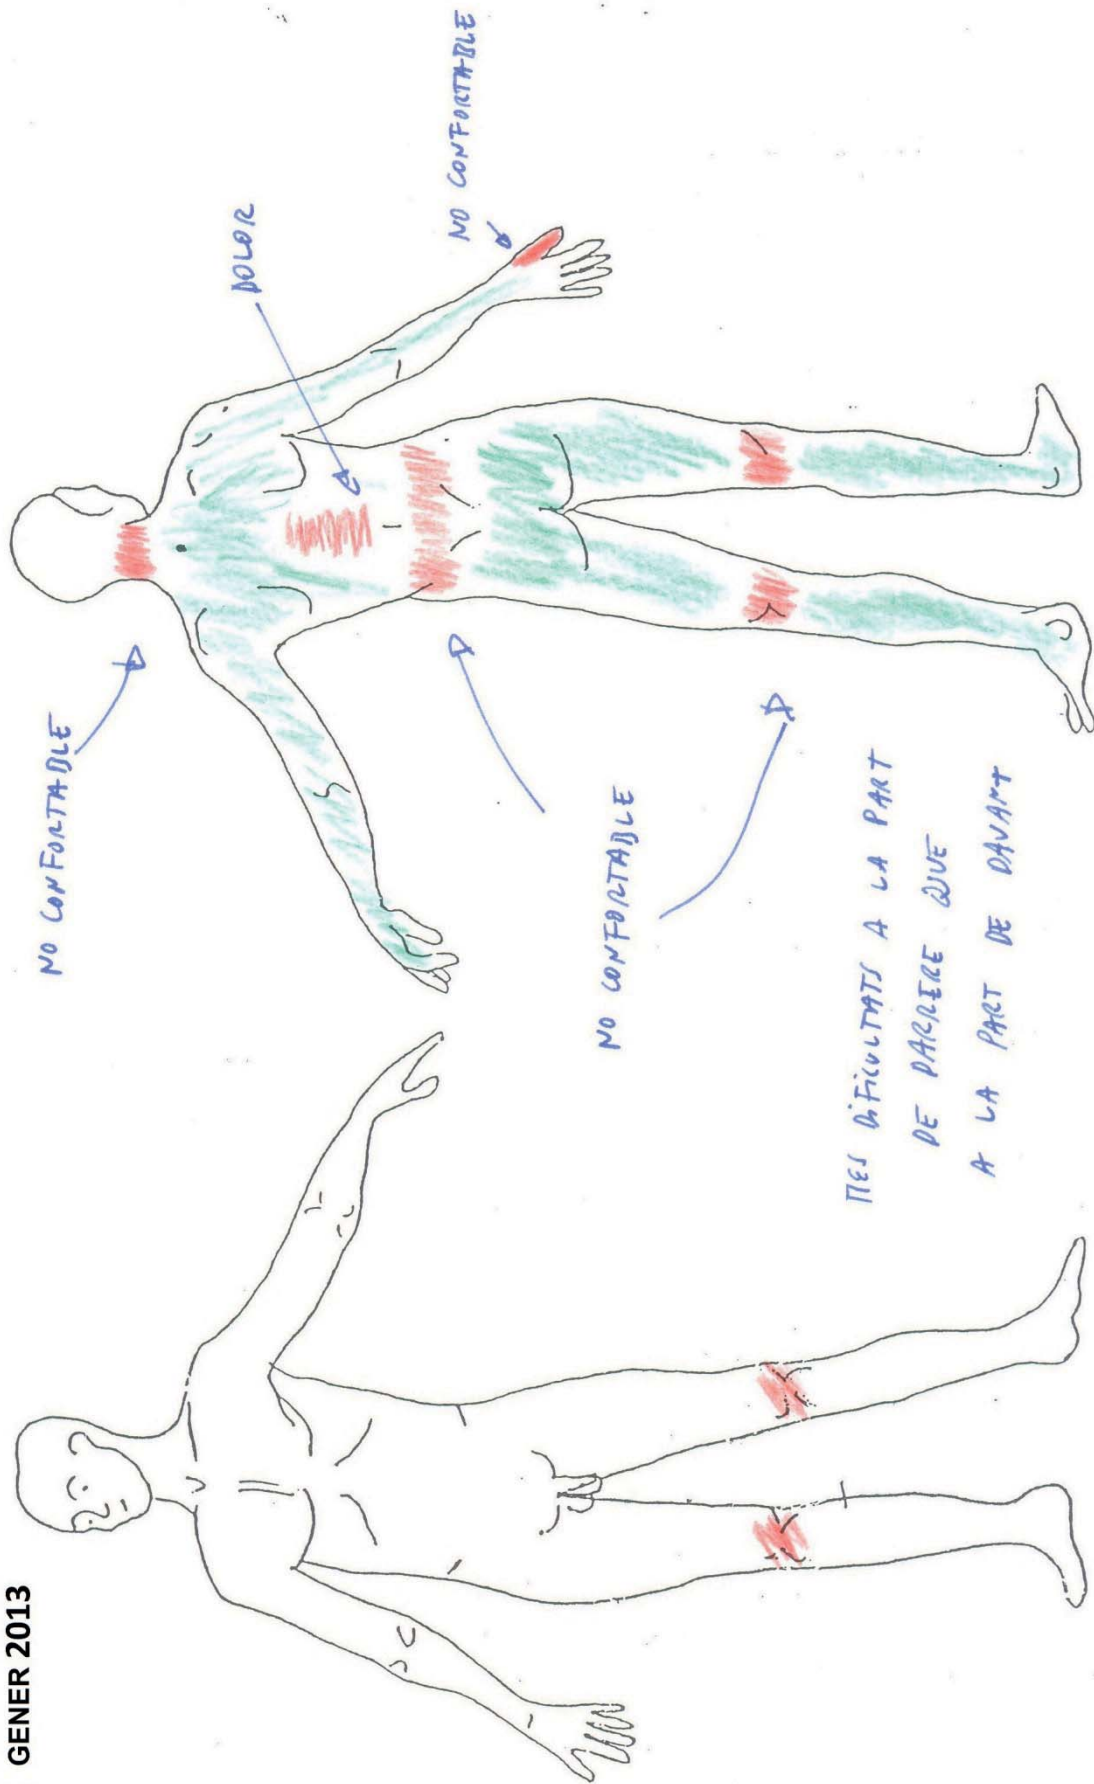 GENER 2013
NO CONFORTABLE
DOLOR
NO CONFORTABLE
NO CONFORTABLE
MES DIFICULTATS A LA PART
DE DARRERE QUE
A LA PART DE DAVANT